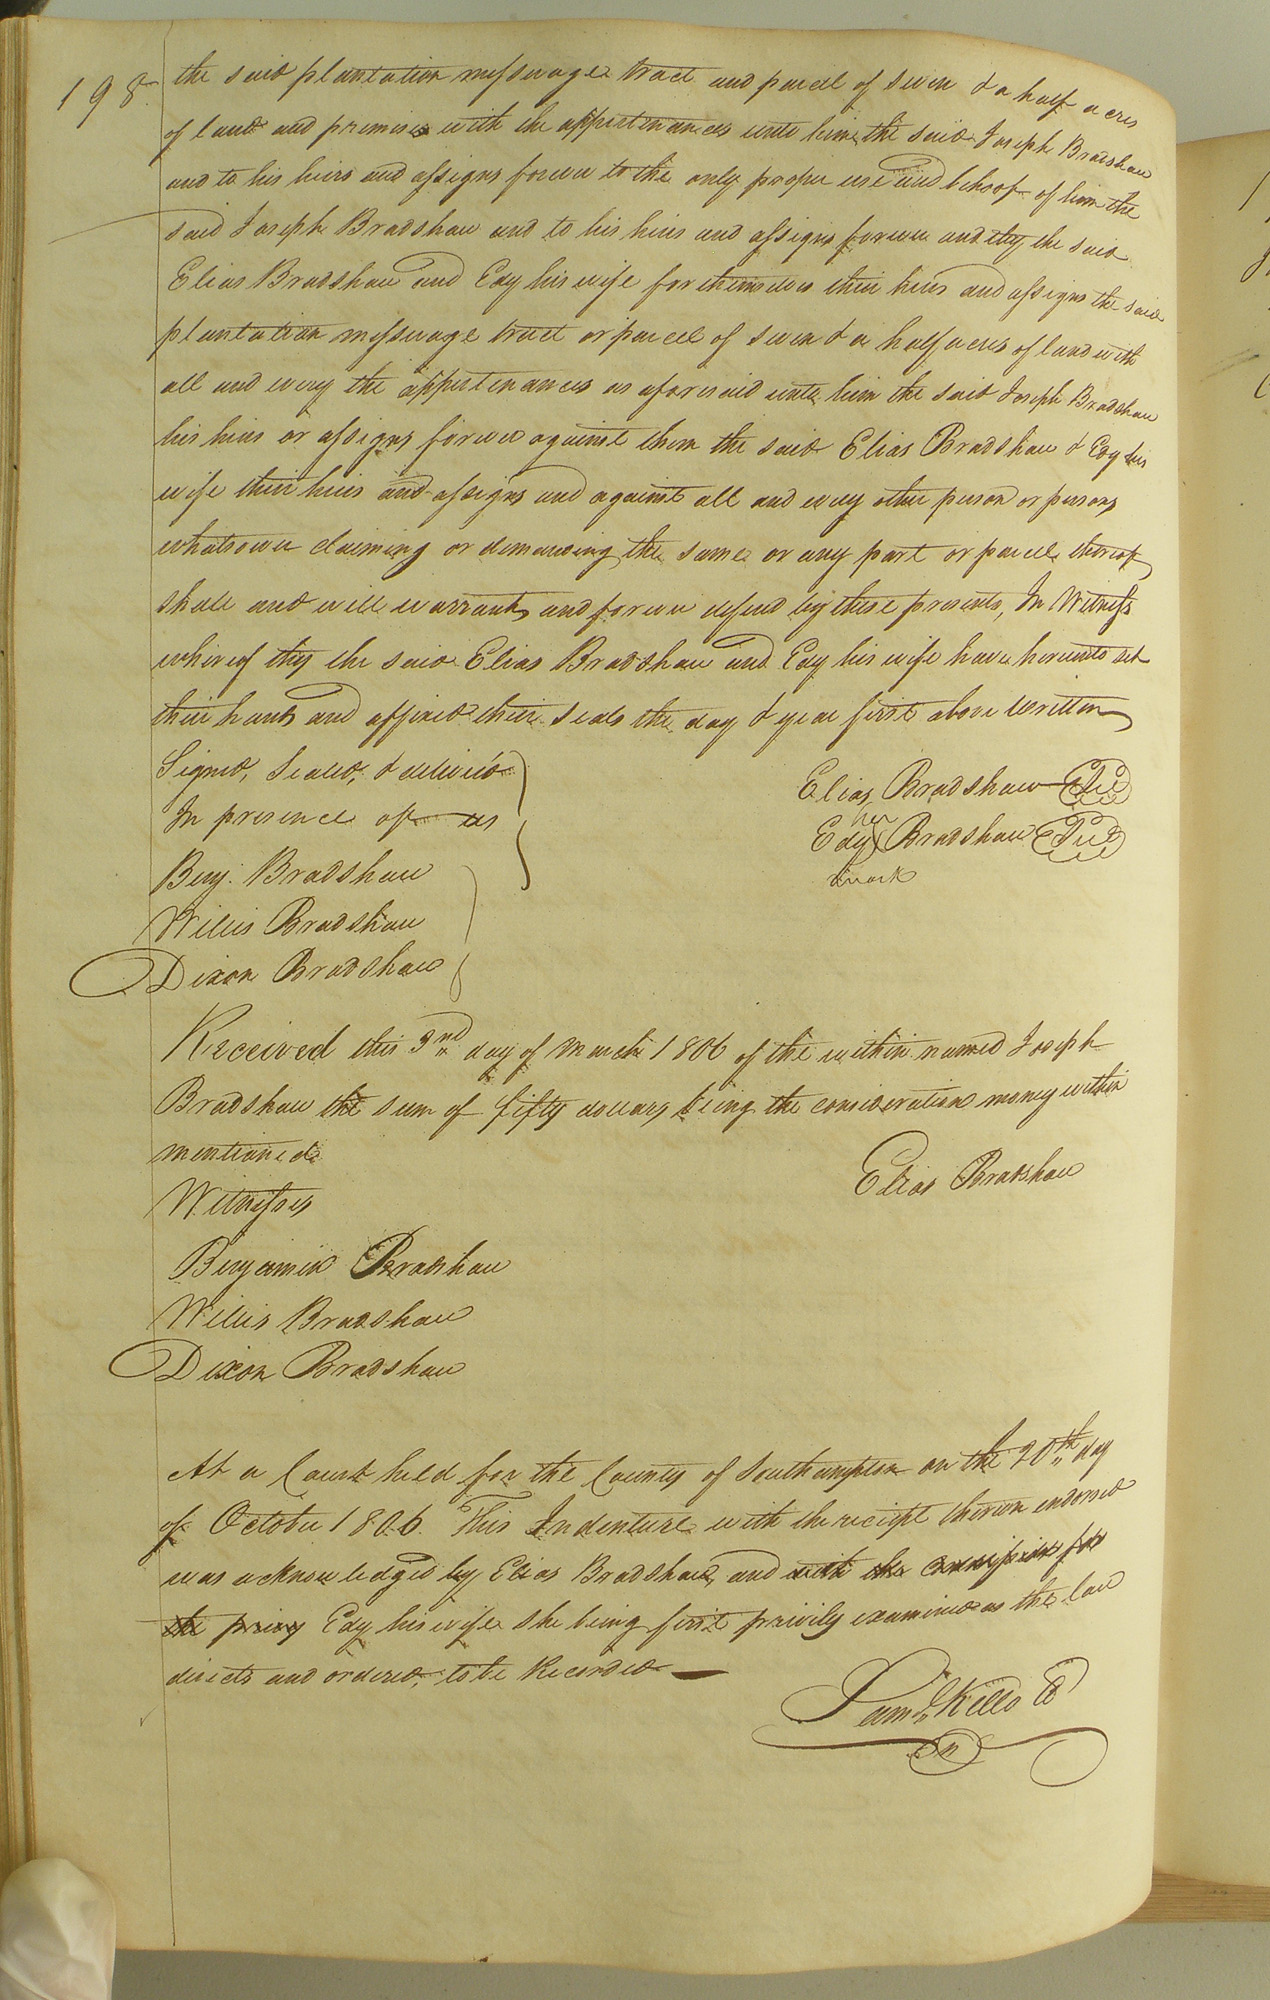 198
the said plantation messuage tract and parcel of seven & a half acres
of land and premises with the appertenances unto him the said Joseph Bradshaw
and to his heirs and assigns forever to the only proper use and behoof of him the
said Joseph Bradshaw and to his heirs and assigns forever and they the said
Elias Bradshaw and Edy his wife for themselves their heirs and assigns the said
plantation messuage tract or parcel of seven & a half acres of land with
all and every the appertenances as aforesaid unto him the said Joseph Bradshaw
his heirs or assigns forever against them the said Elias Bradshaw & Edy his
wife their heirs and assigns and against all and every other person or persons
whatsoever claiming or demanding the same or any part or parcel thereof
shall and will warrant and forever defend by these presents, In Witness
whereof they the said Elias Bradshaw and Edy his wife have hereunto set
their hands and affixed their seals the day & year first above written
Signed, Sealed, & deliver'd
In presence of us
Elias Bradshaw
her
Edy Bradshaw
mark
Benj. Bradshaw
Willis Bradshaw
Dixon Bradshaw
Received this 3nd day of March 1806 of the within named Joseph
Bradshaw the sum of fifty dollars, being the consideration money within
mentioned
Elias Bradshaw
Witnesses
Benjamin Bradshaw
Willis Bradshaw
Dixon Bradshaw
At a Court held for the County of Southampton on the 20th day
of October 1806. This Indenture with the receipt thereon endorsed
was acknowledged by Elias Bradshaw, and with the for
the privy Edy his wife she being first privily examined as the law
directs and ordered, to be Recorded
Saml. Kello